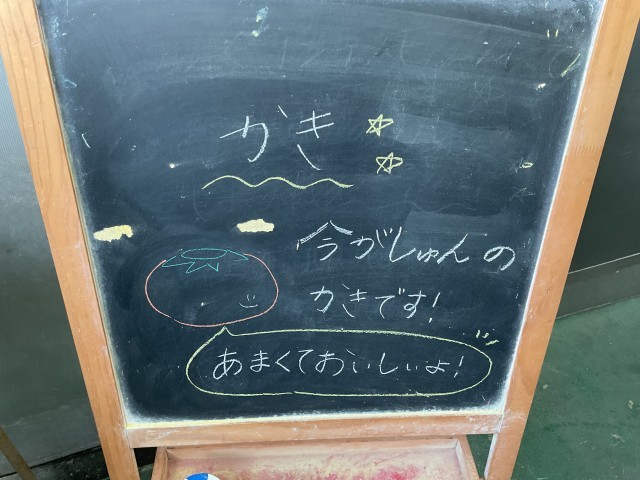 かき
今がしゅんの
かきです!
あまくておいしいよ!